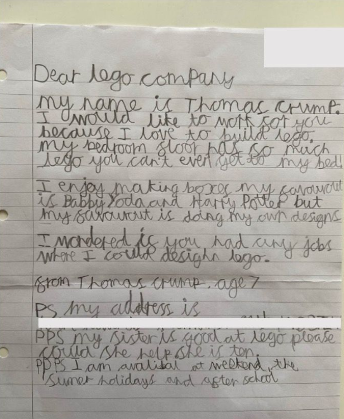 Dear lego company
my name is Thomas Crump.
I would like to work for you
because I love to build lego.
my bedroom floor has so much
lego you can't even get to my bed!
I enjoy making boxes my favourit
is Babby Yoda and Harry Potter but
my favourit is doing my own designs
I wondered if you had any jobs
where I could design lego.
from Thomas crump. age 7
PS my address is
PPS my sister is good at lego please
could she help she is ten.
PPPS I am avalibal at weekend, the
sumer holidays and after school